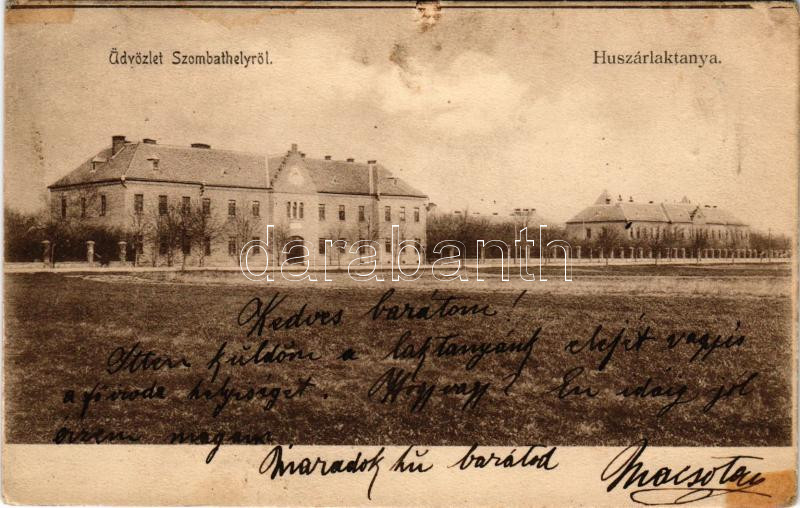 Üdvözlet Szombathelyröl.
Huszárlaktanya.
darabanth
Kedves barátom!
Itten küldöm a laktanyánk elejét vagyis
a főiroda helyiséget. Hogy vagy? Én idáig jól
érzem magam
Maradok hű barátod